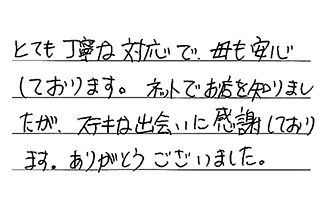 とても丁寧な対応で、母も安心
しております。ネットでお店を知りまし
たが、ステキな出会いに感謝しており
ます。ありがとうございました。